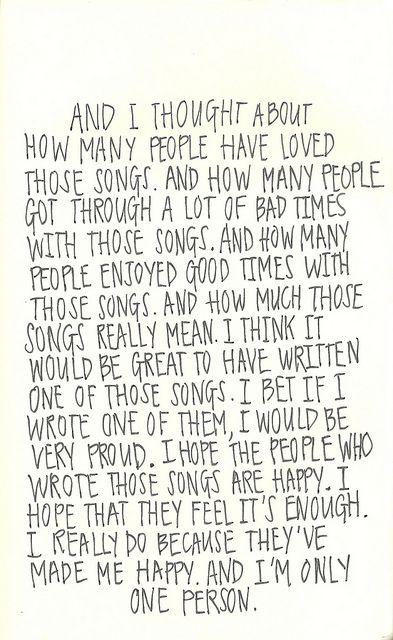 AND I THOUGHT ABOUT
HOW MANY PEOPLE HAVE LOVED
THOSE SONGS. AND HOW MANY PEOPLE
GOT THROUGH A LOT OF BAD TIMES
WITH THOSE SONGS. AND HOW MANY
PEOPLE ENJOYED GOOD TIMES WITH
THOSE SONGS. AND HOW MUCH THOSE
SONGS REALLY MEAN. I THINK IT
WOULD BE GREAT TO HAVE WRITTEN
ONE OF THOSE SONGS. I BET IF I
WROTE ONE OF THEM, I WOULD BE
VERY PROUD. I HOPE THE PEOPLE WHO
WROTE THOSE SONGS ARE HAPPY. I
HOPE THAT THEY FEEL IT'S ENOUGH.
I REALLY DO BECAUSE THEY'VE
MADE ME HAPPY. AND I'M ONLY
ONE PERSON.